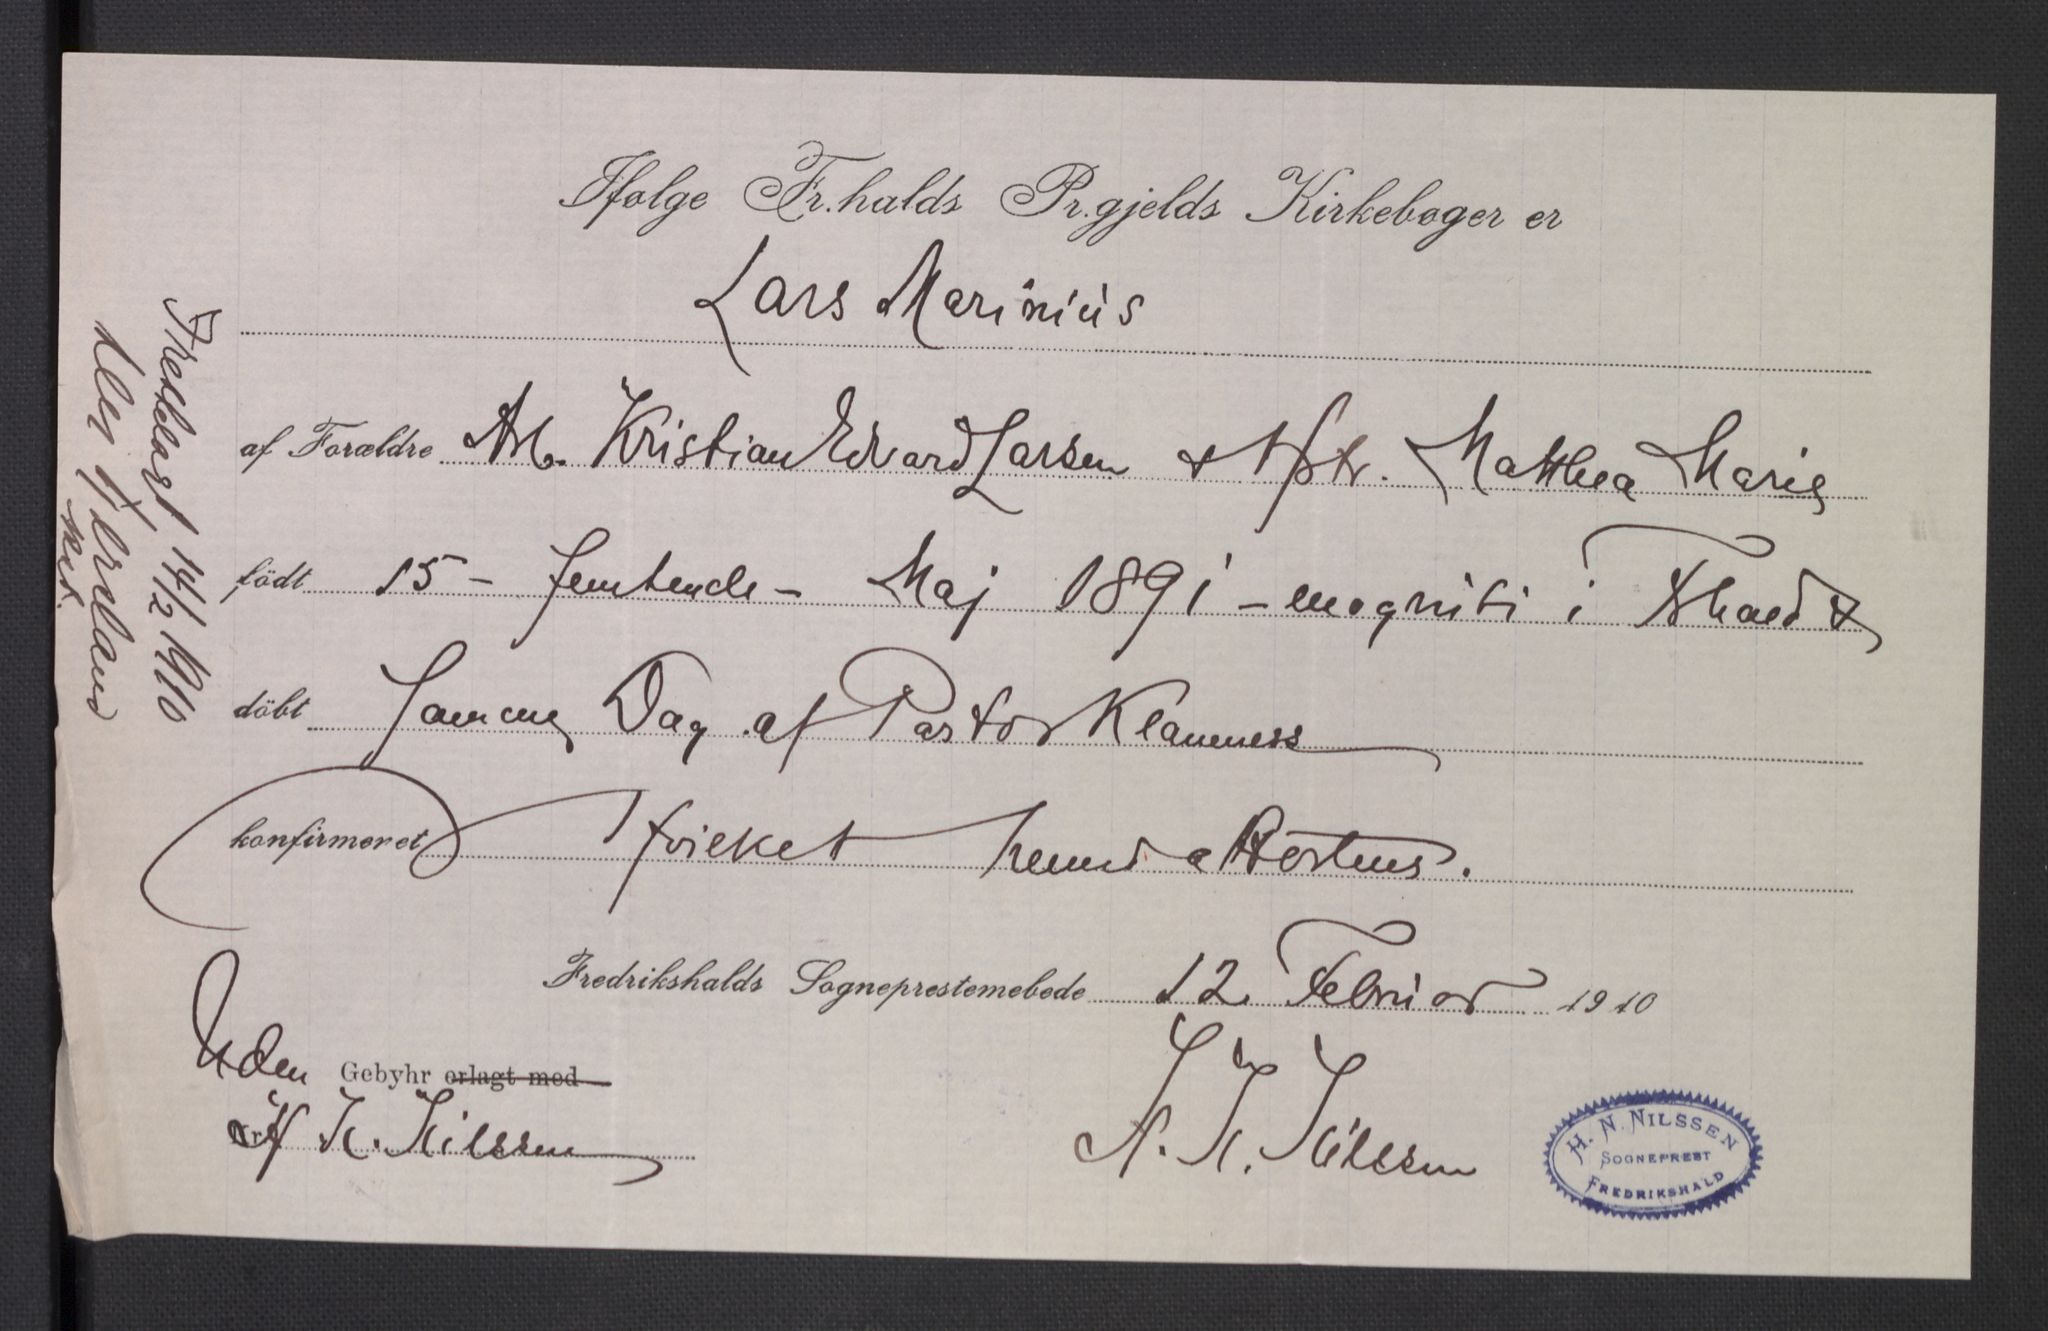 Ifølge Fr.halds Pr.gjelds Kirkebøger er
Lars Marinius
af Forældre Arb. Kristian Edvard Larsen & Hstr. Mathea Marie
födt 15 - femtende - Maj 1891 - i F.hald &
döbt Samme Dag af Pastor Klamness
konfirmeret
hvilket herved attesteres.
Fredrikshalds Sogneprestembede 12 Februar 1910
Uden Gebyhr erlagt med
H. N. Nilssen
H. N. Nilssen
H. N. NILSSEN
SOGNEPREST
FREDRIKSHALD
14/2 1910